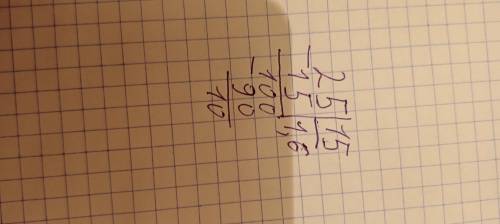 25|15
-15|1,6
100
-90
10